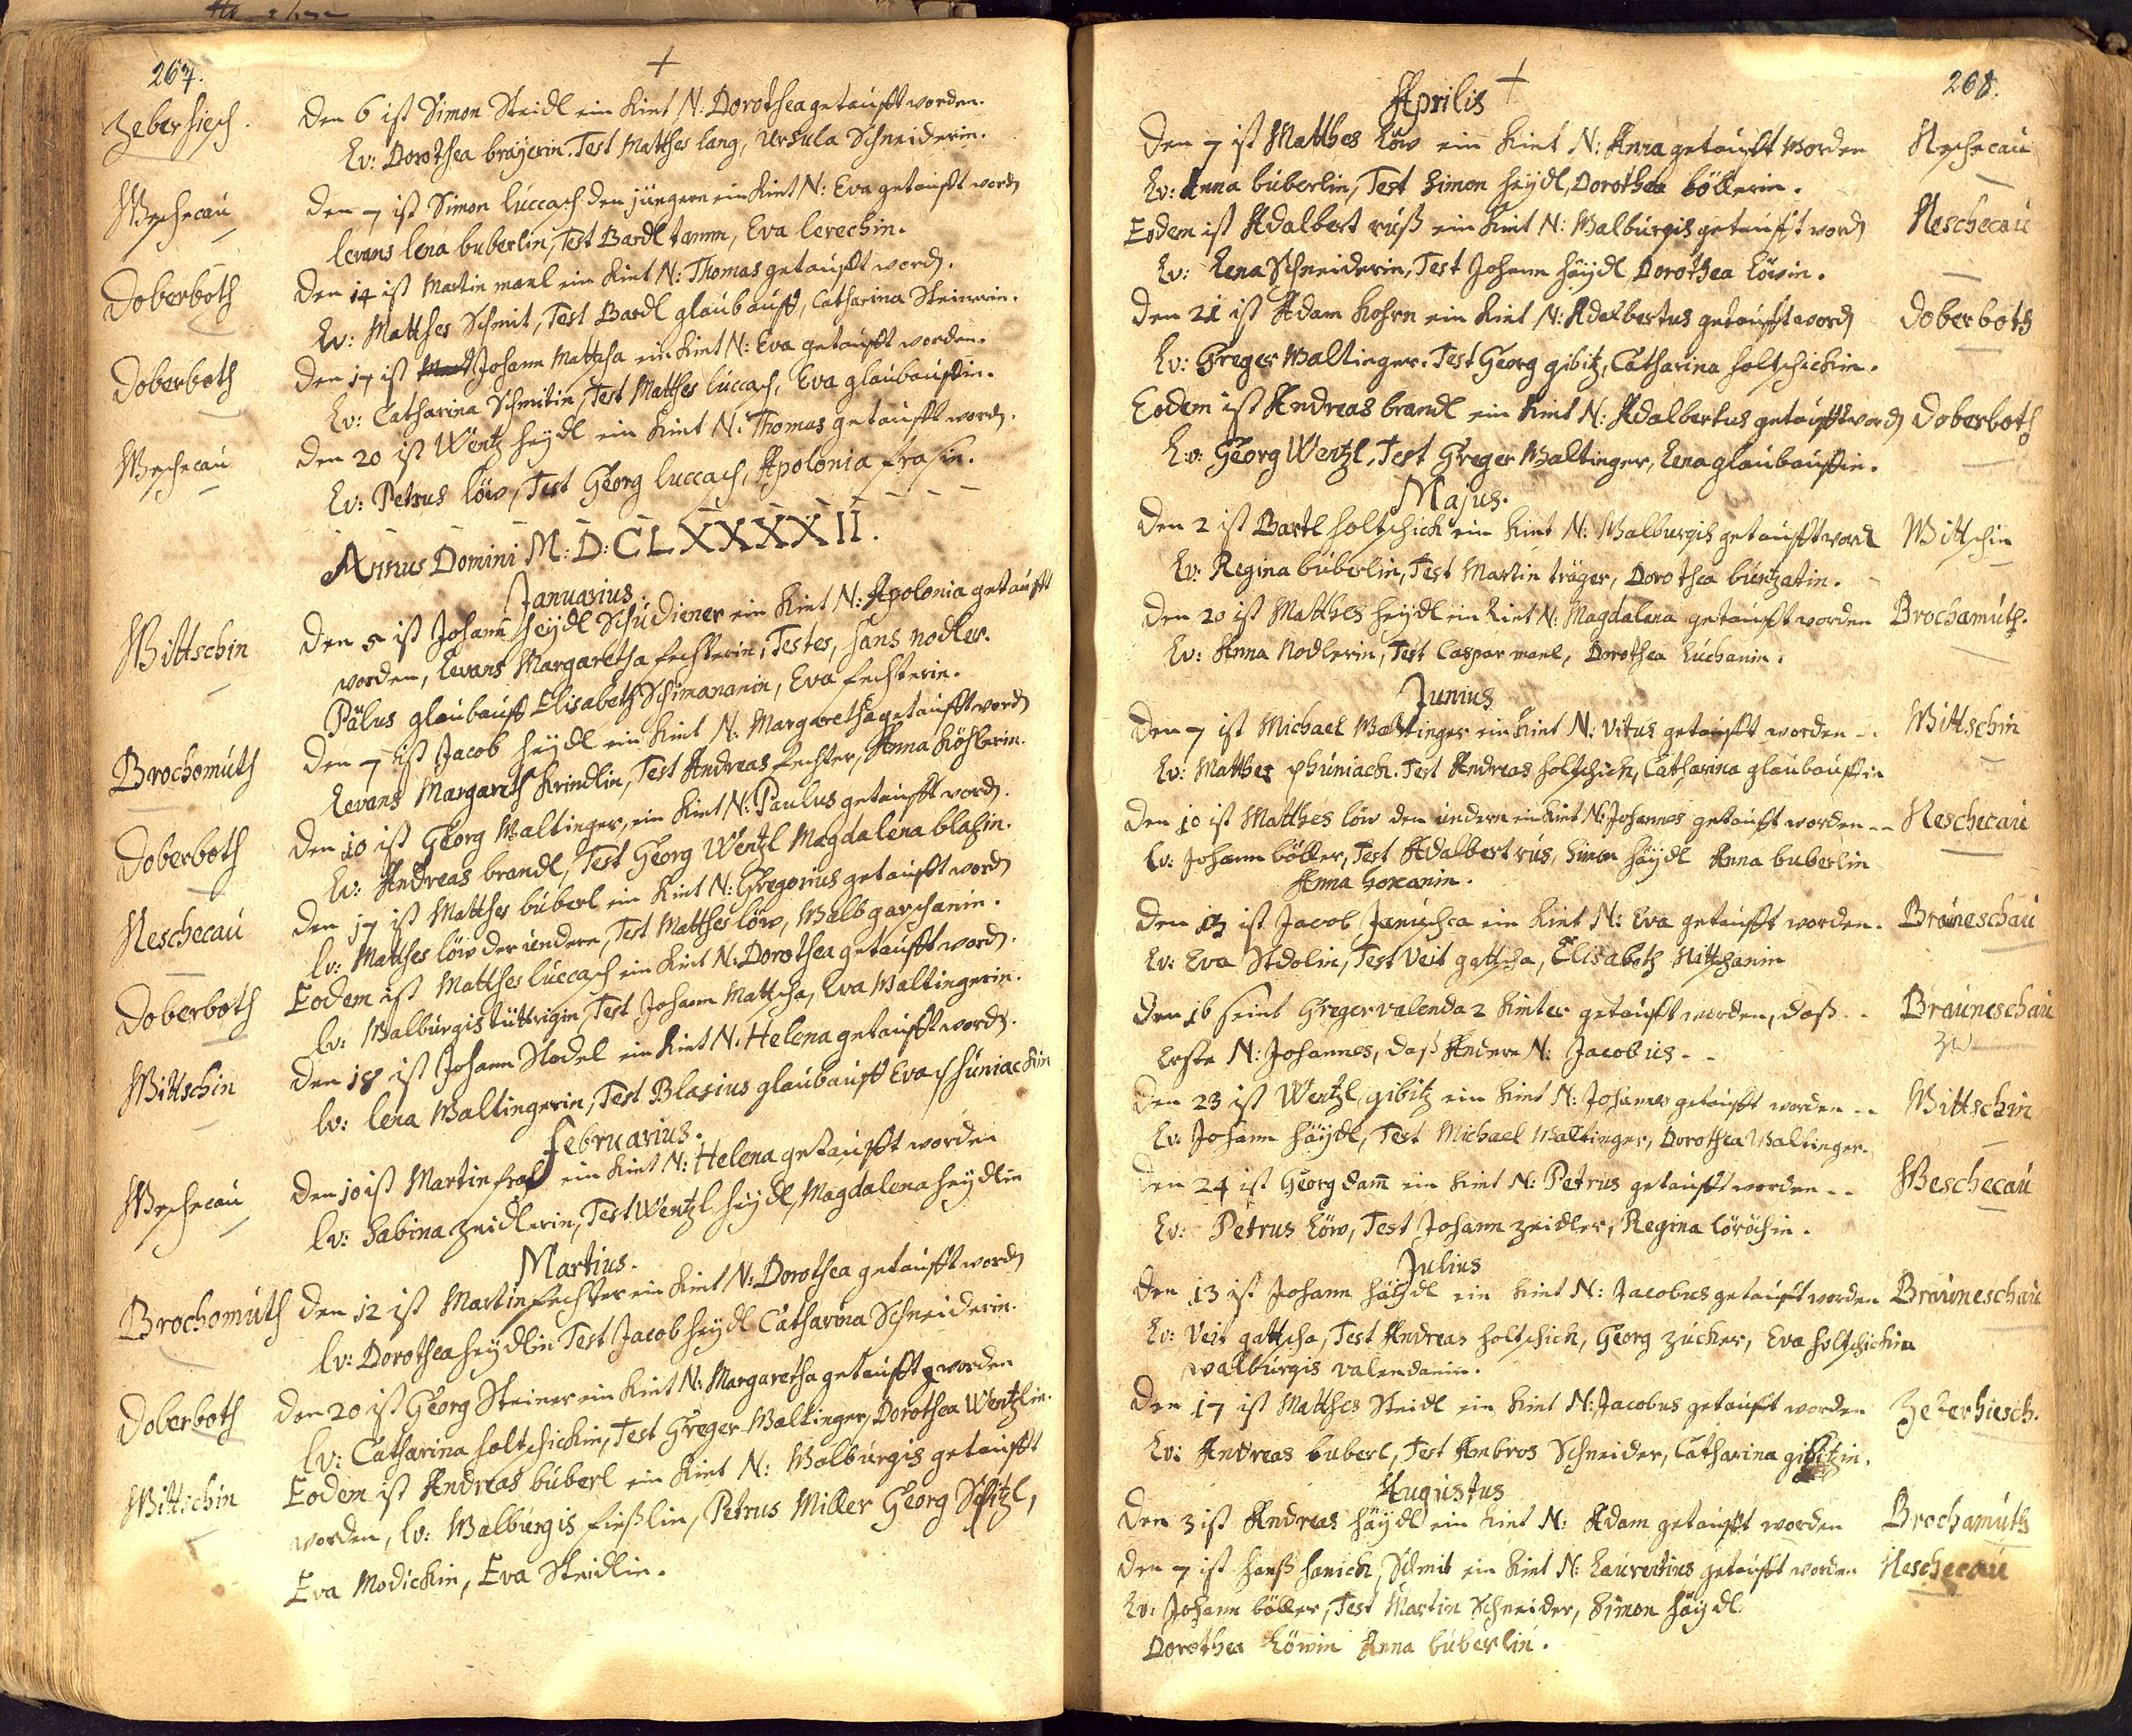 267.
Zeberhiesch. Den 6 ist Simon Steidl ein Kint N: Dorothea getaufft worden.
Lv: Dorothea bräyerin. Test Matthes lang, Ursula Schneiderin.
Weschecau Den 7 ist Simon luccasch den jüngern ein Kint N: Eva getaufft word
levans lena buberlin, Test Bardl tamm, Eva lerechin.
Doberboth Den 14 ist Martin manl ein Kint N: Thomas getaufft word.
Lv: Matthes Schmit, Test Bardl glaubauff, Catharina Steinerin.
Doberboth Den 17 ist Johann Mattcha ein Kint N: Eva getaufft worden.
Lv: Catharina Schmitin, Test Matthes luccasch, Eva glaubauffin.
Weschecau Den 20 ist Wentz heydl ein Kint N: Thomas getaufft word.
Lv: Petrus löw, Test Georg luccasch, Apolonia
Annus Domini M: D: C L X X X X I I.
Januarius.
Wittschin Den 5 ist Johann heydl Schudiener ein Kint N: Apolonia getaufft
worden, Levans Margaretha fechterin, Testes, hans nodler.
Paulus glaubauff Elisabeth Schimananin, Eva fechterin.
Brochomuth Den 7 ist Jacob heydl ein Kint N: Margaretha getaufft word
Levans Margareth Krindlin, Test Andreas fechter, Anna Köhlerin.
Doberboth Den 10 ist Georg Waltinger, ein Kint N: Paulus getaufft word.
Lv: Andreas brandl, Test Georg Wentzl Magdalena blahin.
Neschecau Den 17 ist Matthes buberl ein Kint N: Gregorius getaufft word
lv: Matthes löw der undere, Test Matthes löw, Walb garschanin.
Doberboth Eodem ist Matthes luccasch ein Kint N: Dorothea getaufft word.
lv: Walburgis tüttrigin, Test Johann Mattcha, Eva Waltingerin.
Wittschin Den 18 ist Johann Stodel ein Kint N: Helena getaufft word.
lv: lena Waltingerin, Test Blasius glaubauff Eva schuniackin
Februarius.
Weschecau Den 10 ist Martin ein Kint N: Helena getaufft worden
lv: Sabina zeidlerin, Test Wentzl heydl, Magdalena heydlin
Martius.
Brochomuth Den 12 ist Martin fechter ein Kint N: Dorothea getaufft word
lv: Dorothea heydlin Test Jacob heydl Catharina Schneiderin.
Doberboth Den 20 ist Georg Steiner ein Kint N: Margaretha getaufft worden
lv: Catharina holtschickin, Test Greger Waltinger, Dorothea Wentzlin.
Wittschin Eodem ist Andreas buberl ein Kint N: Walburgis getaufft
worden, lv: Walburgis fießlin, Petrus Miller Georg Spitzl,
Eva Modickin, Eva Steidlin.
268.
Aprilis
Den 7 ist Matthes löw ein Kint N: Anna getaufft worden Neschecau
Lv: Anna buberlin, Test Simon heydl, Dorothea böllerin.
Eodem ist Adalbert ruß ein Kint N: Walburgis getaufft word Neschecau
Lv: Lena Schneiderin, Test Johann häydl Dorothea Löwin.
Den 21 ist Adam Kohrn ein Kint N: Adalbertus getaufft word Doberboth
Lv: Greger Waltinger. Test Georg gibitz, Catharina holtschickin.
Eodem ist Andreas brandl ein Kint N: Adalbertus getaufft word Doberboth
Lv: Georg Wentzl, Test Greger Waltinger, Lena glaubauffin.
Majus.
Den 2 ist Bartl holtschick ein Kint N: Walburgis getaufft word Wittschin
Lv: Regina buberlin, Test Martin träger, Dorothea buntzatin.
Den 20 ist Matthes heydl ein Kint N: Magdalena getaufft worden Brochamuth.
Lv: Anna Nodlerin, Test Caspar manl, Dorothea Luchanin.
Junius
Den 7 ist Michael Waltinger ein Kint N: Vitus getaufft worden -- Wittschin
Lv: Matthes schuniack. Test Andreas holtschick, Catharina glaubauffin
Den 10 ist Matthes löw den undern ein Kint N: Johannes getaufft worden -- Neschecau
Lv: Johann böller, Test Adalbert rus, Simon häydl Anna buberlin
Anna hoxanin.
Den 13 ist Jacob Januschca ein Kint N: Eva getaufft worden. Brauneschau
Lv: Eva Stdolin, Test Veit gattcha, Elisabeth Nittschanin
Den 16 seint Greger valenda 2 Kinter getaufft worden, daß -- Brauneschau
Erste N: Johannes, daß Andere N: Jacobus --
Den 23 ist Wentzl gibitz ein Kint N: Johannes getaufft worden -- Wittschin
Lv: Johann häydl, Test Michael Waltinger, Dorothea Waltinger.
Den 24 ist Georg dam̄ ein Kint N: Petrus getaufft worden -- Weschecau
Lv: Petrus Löw, Test Johann zeidler, Regina löröchin.
Julius
Den 13 ist Johann häydl ein Kint N: Jacobus getaufft worden Brauneschau
Lv: Veit gattcha, Test Andreas holtschick, Georg zucker, Eva holtschickin
walburgis valendanin.
Den 17 ist Matthes Steidl ein Kint N: Jacobus getaufft worden Zeberhiesch.
Lv: Andreas buberl, Test Ambros Schneider, Catharina gibitzin.
Augustus
Den 3 ist Andreas häydl ein Kint N: Adam getaufft worden Brochamuth
Den 7 ist hanß hanick, Schmit ein Kint N: Laurentius getaufft worden Neschecau
Lv: Johann böller, Test Martin Schneider, Simon häydl
Dorothea Löwin Anna buberlin.